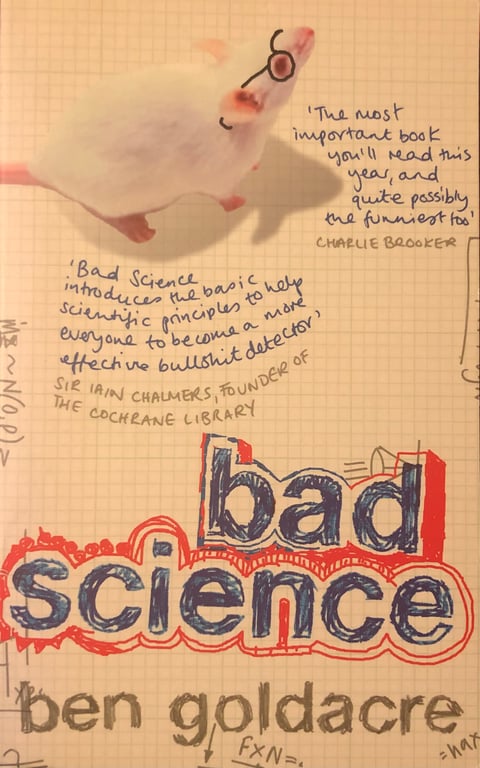 'The most
important book
you'll read this
year, and
quite possibly
the funniest too'
CHARLIE BROOKER
'Bad Science
introduces the basic
scientific principles to help
everyone to become a more
effective bullshit detector'
SIR IAIN CHALMERS, FOUNDER OF
THE COCHRANE LIBRARY
bad
science
ben goldacre
FXN=